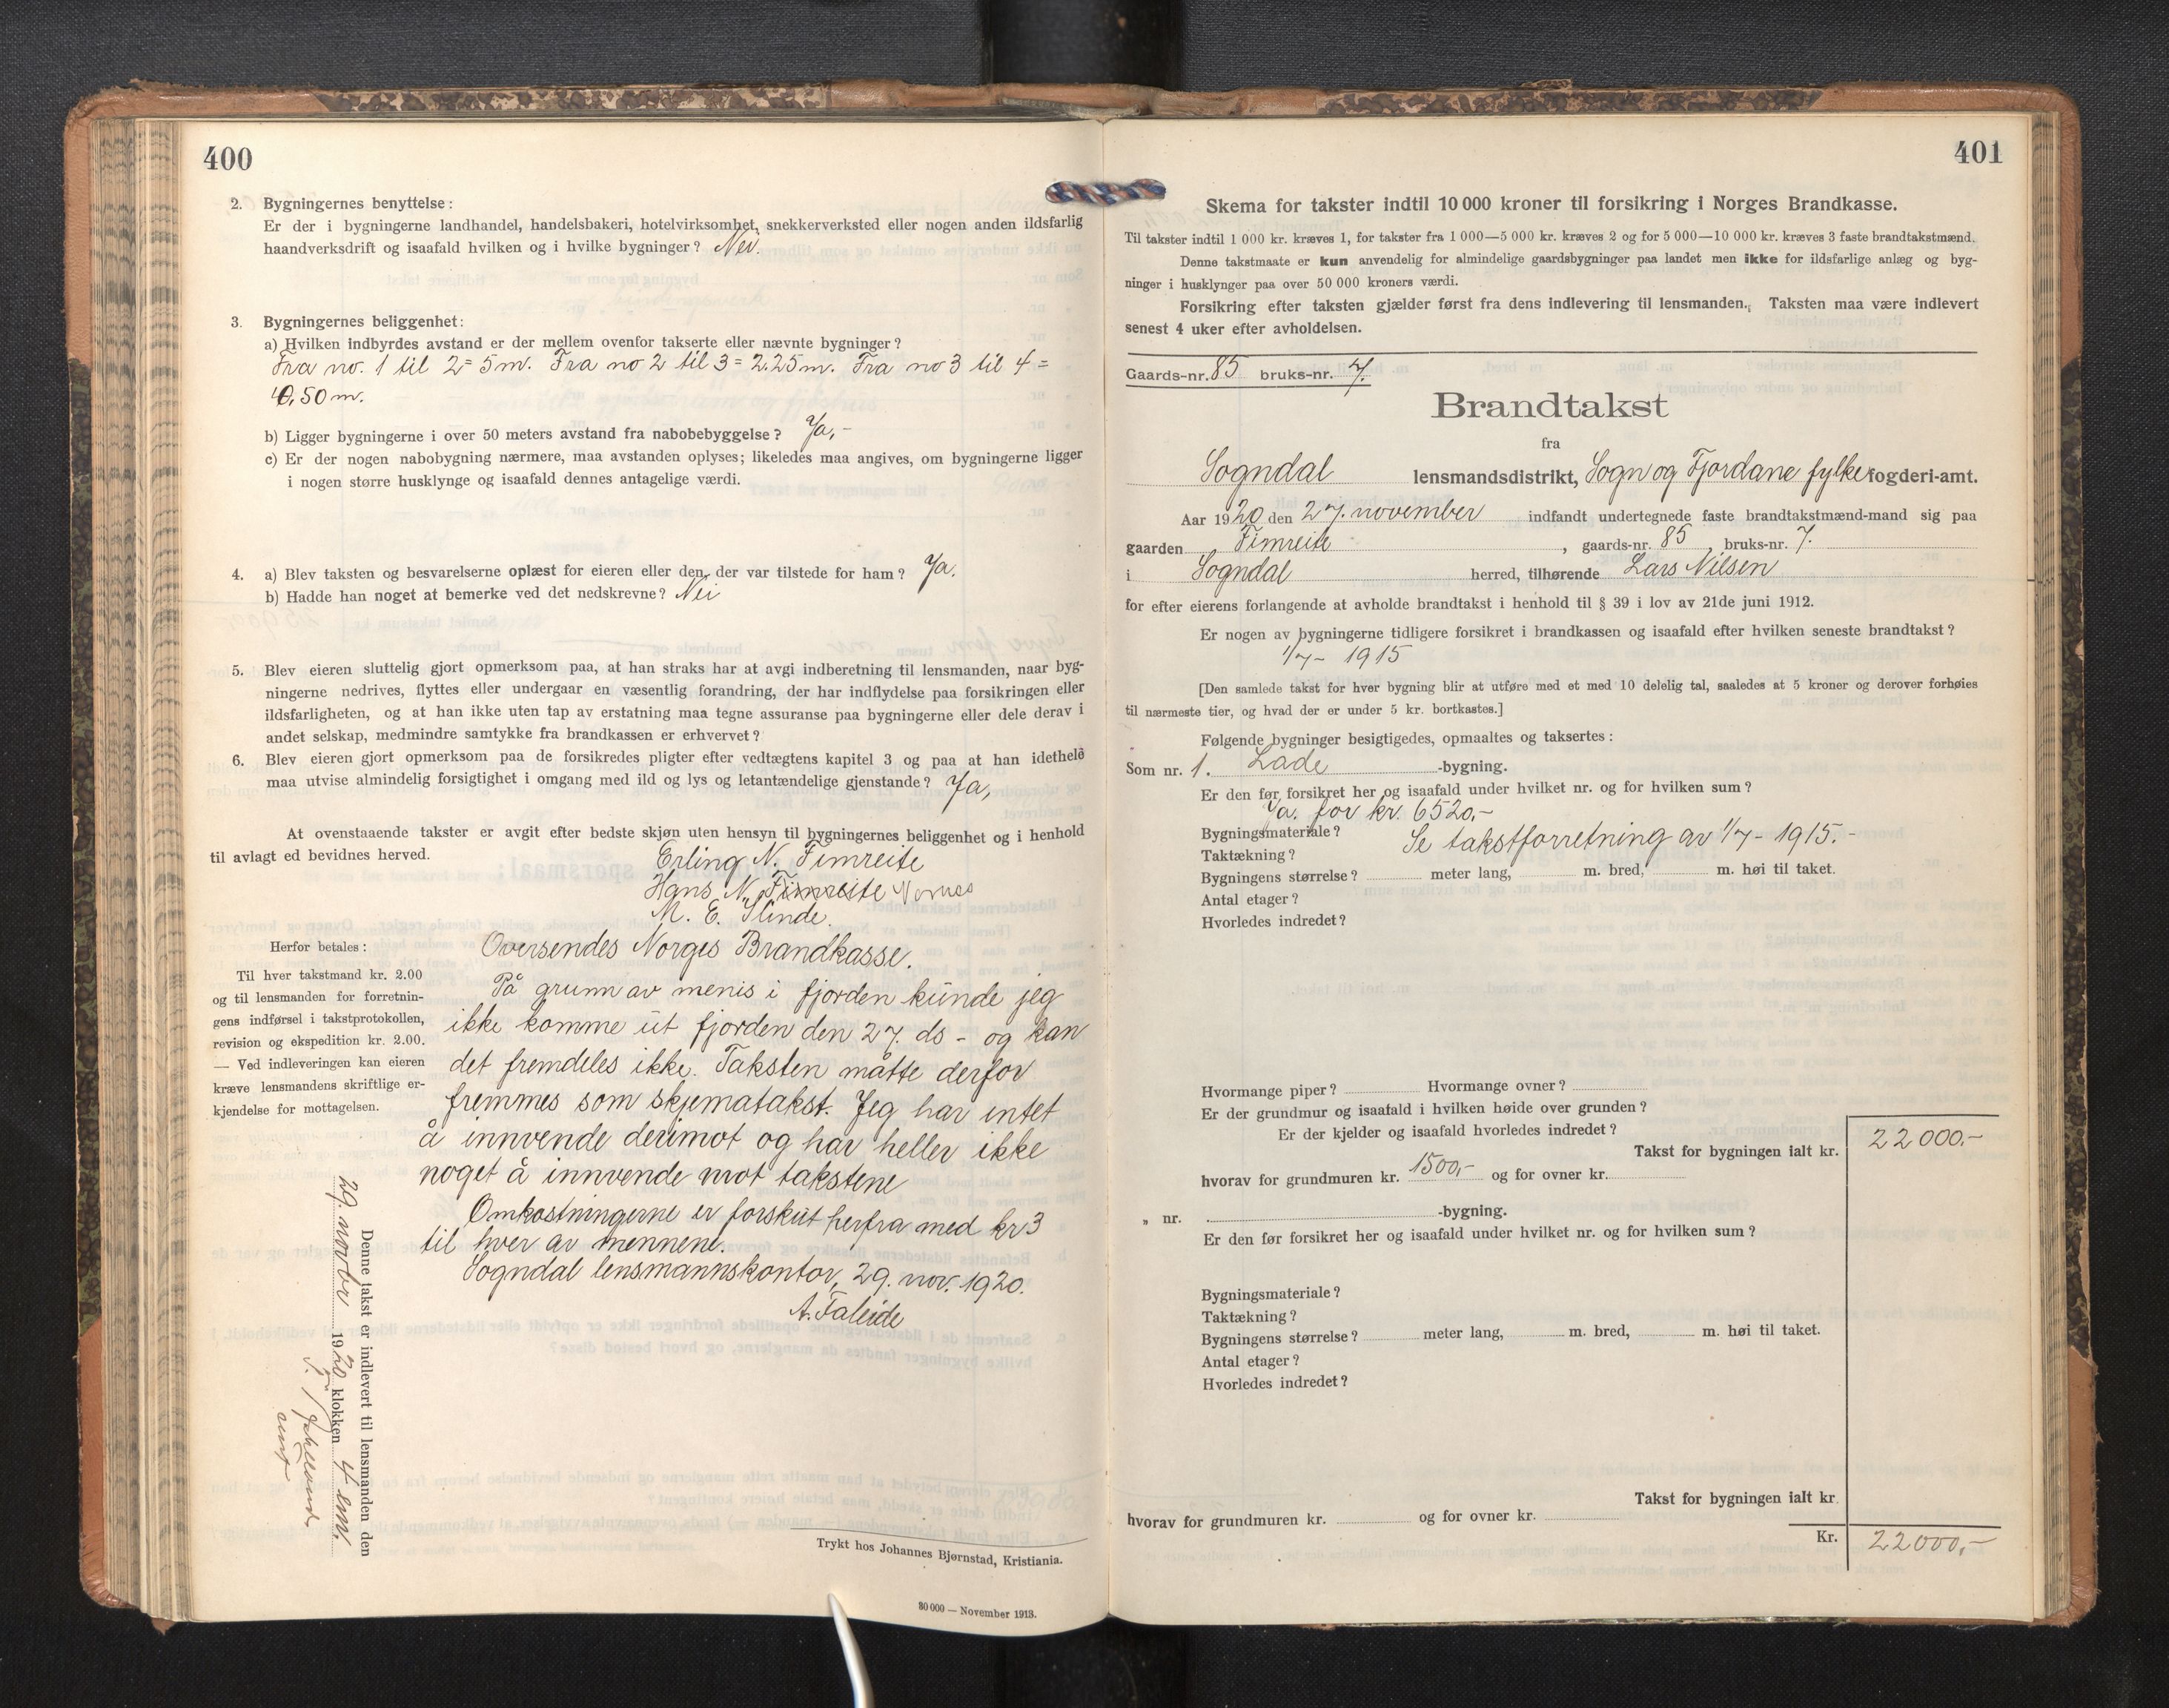 400
2. Bygningernes benyttelse:
Er der i bygningerne landhandel, handelsbakeri, hotelvirksomhet, snekkerverksted eller nogen anden ildsfarlig
haandverksdrift og isaafald hvilken og i hvilke bygninger? Nei.
3. Bygningernes beliggenhet:
a) Hvilken indbyrdes avstand er der mellem ovenfor takserte eller nævnte bygninger?
Fra no. 1 til 2 = 5 m. Fra no 2 til 3 = 2.25 m. Fra no 3 til 4 =
0,50 m.
b) Ligger bygningerne i over 50 meters avstand fra nabobebyggelse? Ja,-
c) Er der nogen nabobygning nærmere, maa avstanden oplyses; likeledes maa angives, om bygningerne ligger
i nogen større husklynge og isaafald dennes antagelige værdi.
4. a) Blev taksten og besvarelserne oplæst for eieren eller den, der var tilstede for ham? Ja.
b) Hadde han noget at bemerke ved det nedskrevne? Nei
5. Blev eieren sluttelig gjort opmerksom paa, at han straks har at avgi indberetning til lensmanden, naar byg-
ningerne nedrives, flyttes eller undergaar en væsentlig forandring, der har indflydelse paa forsikringen eller
ildsfarligheten, og at han ikke uten tap av erstatning maa tegne assuranse paa bygningerne eller dele derav i
andet selskap, medmindre samtykke fra brandkassen er erhvervet?
6. Blev eieren gjort opmerksom paa de forsikredes pligter efter vedtægtens kapitel 3 og paa at han idethele
maa utvise almindelig forsigtighet i omgang med ild og lys og letantændelige gjenstande? Ja,
At ovenstaaende takster er avgit efter bedste skjøn uten hensyn til bygningernes beliggenhet og i henhold
til avlagt ed bevidnes herved.
Erling N. Fimreite
Hans N. Fimreite Nornes
M. E. Slinde.
Herfor betales:
Til hver takstmand kr. 2.00
og til lensmanden for forretnin-
gens indførsel i takstprotokollen,
revision og ekspedition kr. 2.00.
— Ved indleveringen kan eieren
kræve lensmandens skriftlige er-
kjendelse for mottagelsen.
Oversendes Norges Brandkasse.
På grunn av menis i fjorden kunde jeg
ikke komme ut fjorden den 27. ds - og kan
det fremdeles ikke. Taksten måtte derfor
fremmes som skjematakst. Jeg har intet
å innvende derimot og har heller ikke
noget å innvende mot takstene
Omkostningerne er forskut herfra med kr 3
til hver av mennene.
Sogndal lensmannskontor, 29. nov. 1920.
A. Faleide
Denne takst er indlevert til lensmanden den
29. novbr 1920 klokken 4 em.
Trykt hos Johannes Bjørnstad, Kristiania.
30 000 — November 1913.
401
Skema for takster indtil 10 000 kroner til forsikring i Norges Brandkasse.
Til takster indtil 1 000 kr. kræves 1, for takster fra 1 000—5 000 kr. kræves 2 og for 5 000—10 000 kr. kræves 3 faste brandtakstmænd.
Denne takstmaate er kun anvendelig for almindelige gaardsbygninger paa landet men ikke for ildsfarlige anlæg og byg-
ninger i husklynger paa over 50 000 kroners værdi.
Forsikring efter taksten gjælder først fra dens indlevering til lensmanden. Taksten maa være indlevert
senest 4 uker efter avholdelsen.
Gaards-nr. 85 bruks-nr. 7.
Brandtakst
fra
Sogndal lensmandsdistrikt, Sogn og Fjordane fylke fogderi-amt.
Aar 1920 den 27. november indfandt undertegnede faste brandtakstmænd-mand sig paa
gaarden Fimreite, gaards-nr. 85, bruks-nr. 7.
i Sogndal herred, tilhørende Lars Nilsen
for efter eierens forlangende at avholde brandtakst i henhold til § 39 i lov av 21de juni 1912.
Er nogen av bygningerne tidligere forsikret i brandkassen og isaafald efter hvilken seneste brandtakst?
1/7 - 1915
[Den samlede takst for hver bygning blir at utføre med et med 10 delelig tal, saaledes at 5 kroner og derover forhøies
til nærmeste tier, og hvad der er under 5 kr. bortkastes.]
Følgende bygninger besigtigedes, opmaaltes og taksertes:
Som nr. 1. Lade -bygning.
Er den før forsikret her og isaafald under hvilket nr. og for hvilken sum?
Ja. for kr. 6520,-
Bygningsmateriale? Se takstforretning av 1/7 - 1915.-
Taktækning?
Bygningens størrelse? meter lang, m. bred, m. høi til taket.
Antal etager?
Hvorledes indredet?
Hvormange piper? Hvormange ovner?
Er der grundmur og isaafald i hvilken høide over grunden?
Er der kjelder og isaafald hvorledes indredet?
Takst for bygningen ialt kr. 22 000.-
hvorav for grundmuren kr. 1500,- og for ovner kr.
„ nr. -bygning.
Er den før forsikret her og isaafald under hvilket nr. og for hvilken sum?
Bygningsmateriale?
Taktækning?
Bygningens størrelse? meter lang, m. bred, m. høi til taket.
Antal etager?
Hvorledes indredet?
Takst for bygningen ialt kr.
hvorav for grundmuren kr. og for ovner kr.
Kr. 22000,-